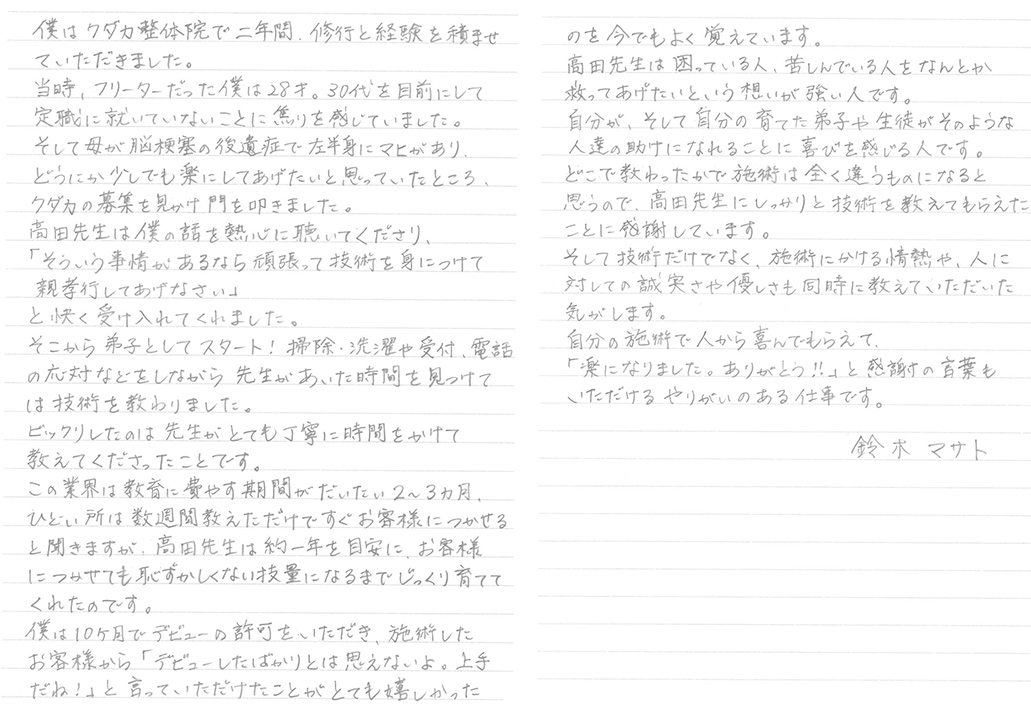 僕はクダカ整体院で二年間、修行と経験を積ませ
ていただきました。
当時、フリーターだった僕は28才。30代を目前にして
定職に就いていないことに焦りを感じていました。
そして母が脳梗塞の後遺症で左半身にマヒがあり、
どうにか少しでも楽にしてあげたいと思っていたところ、
クダカの募集を見かけ門を叩きました。
高田先生は僕の話を熱心に聴いてくださり、
「そういう事情があるなら頑張って技術を身につけて
親孝行してあげなさい」
と快く受け入れてくれました。
そこから弟子としてスタート！掃除・洗濯や受付、電話
の応対などをしながら先生があいた時間を見つけて
は技術を教わりました。
ビックリしたのは先生がとても丁寧に時間をかけて
教えてくださったことです。
この業界は教育に費やす期間がだいたい2～3カ月、
ひどい所は数週間教えただけですぐお客様につかせる
と聞きますが、高田先生は約一年を目安に、お客様
につかせても恥ずかしくない技量になるまでじっくり育てて
くれたのです。
僕は10ヶ月でデビューの許可をいただき、施術した
お客様から「デビューしたばかりとは思えないよ。上手
だね！」と言っていただけたことがとても嬉しかった
のを今でもよく覚えています。
高田先生は困っている人、苦しんでいる人をなんとか
救ってあげたいという想いが強い人です。
自分が、そして自分の育てた弟子や生徒がそのような
人達の助けになれることに喜びを感じる人です。
どこで教わったかで施術は全く違うものになると
思うので、高田先生にしっかりと技術を教えてもらえた
ことに感謝しています。
そして技術だけでなく、施術にかける情熱や、人に
対しての誠実さや優しさも同時に教えていただいた
気がします。
自分の施術で人から喜んでもらえて、
「楽になりました。ありがとう!!」と感謝の言葉も
いただけるやりがいのある仕事です。
鈴木 マサト